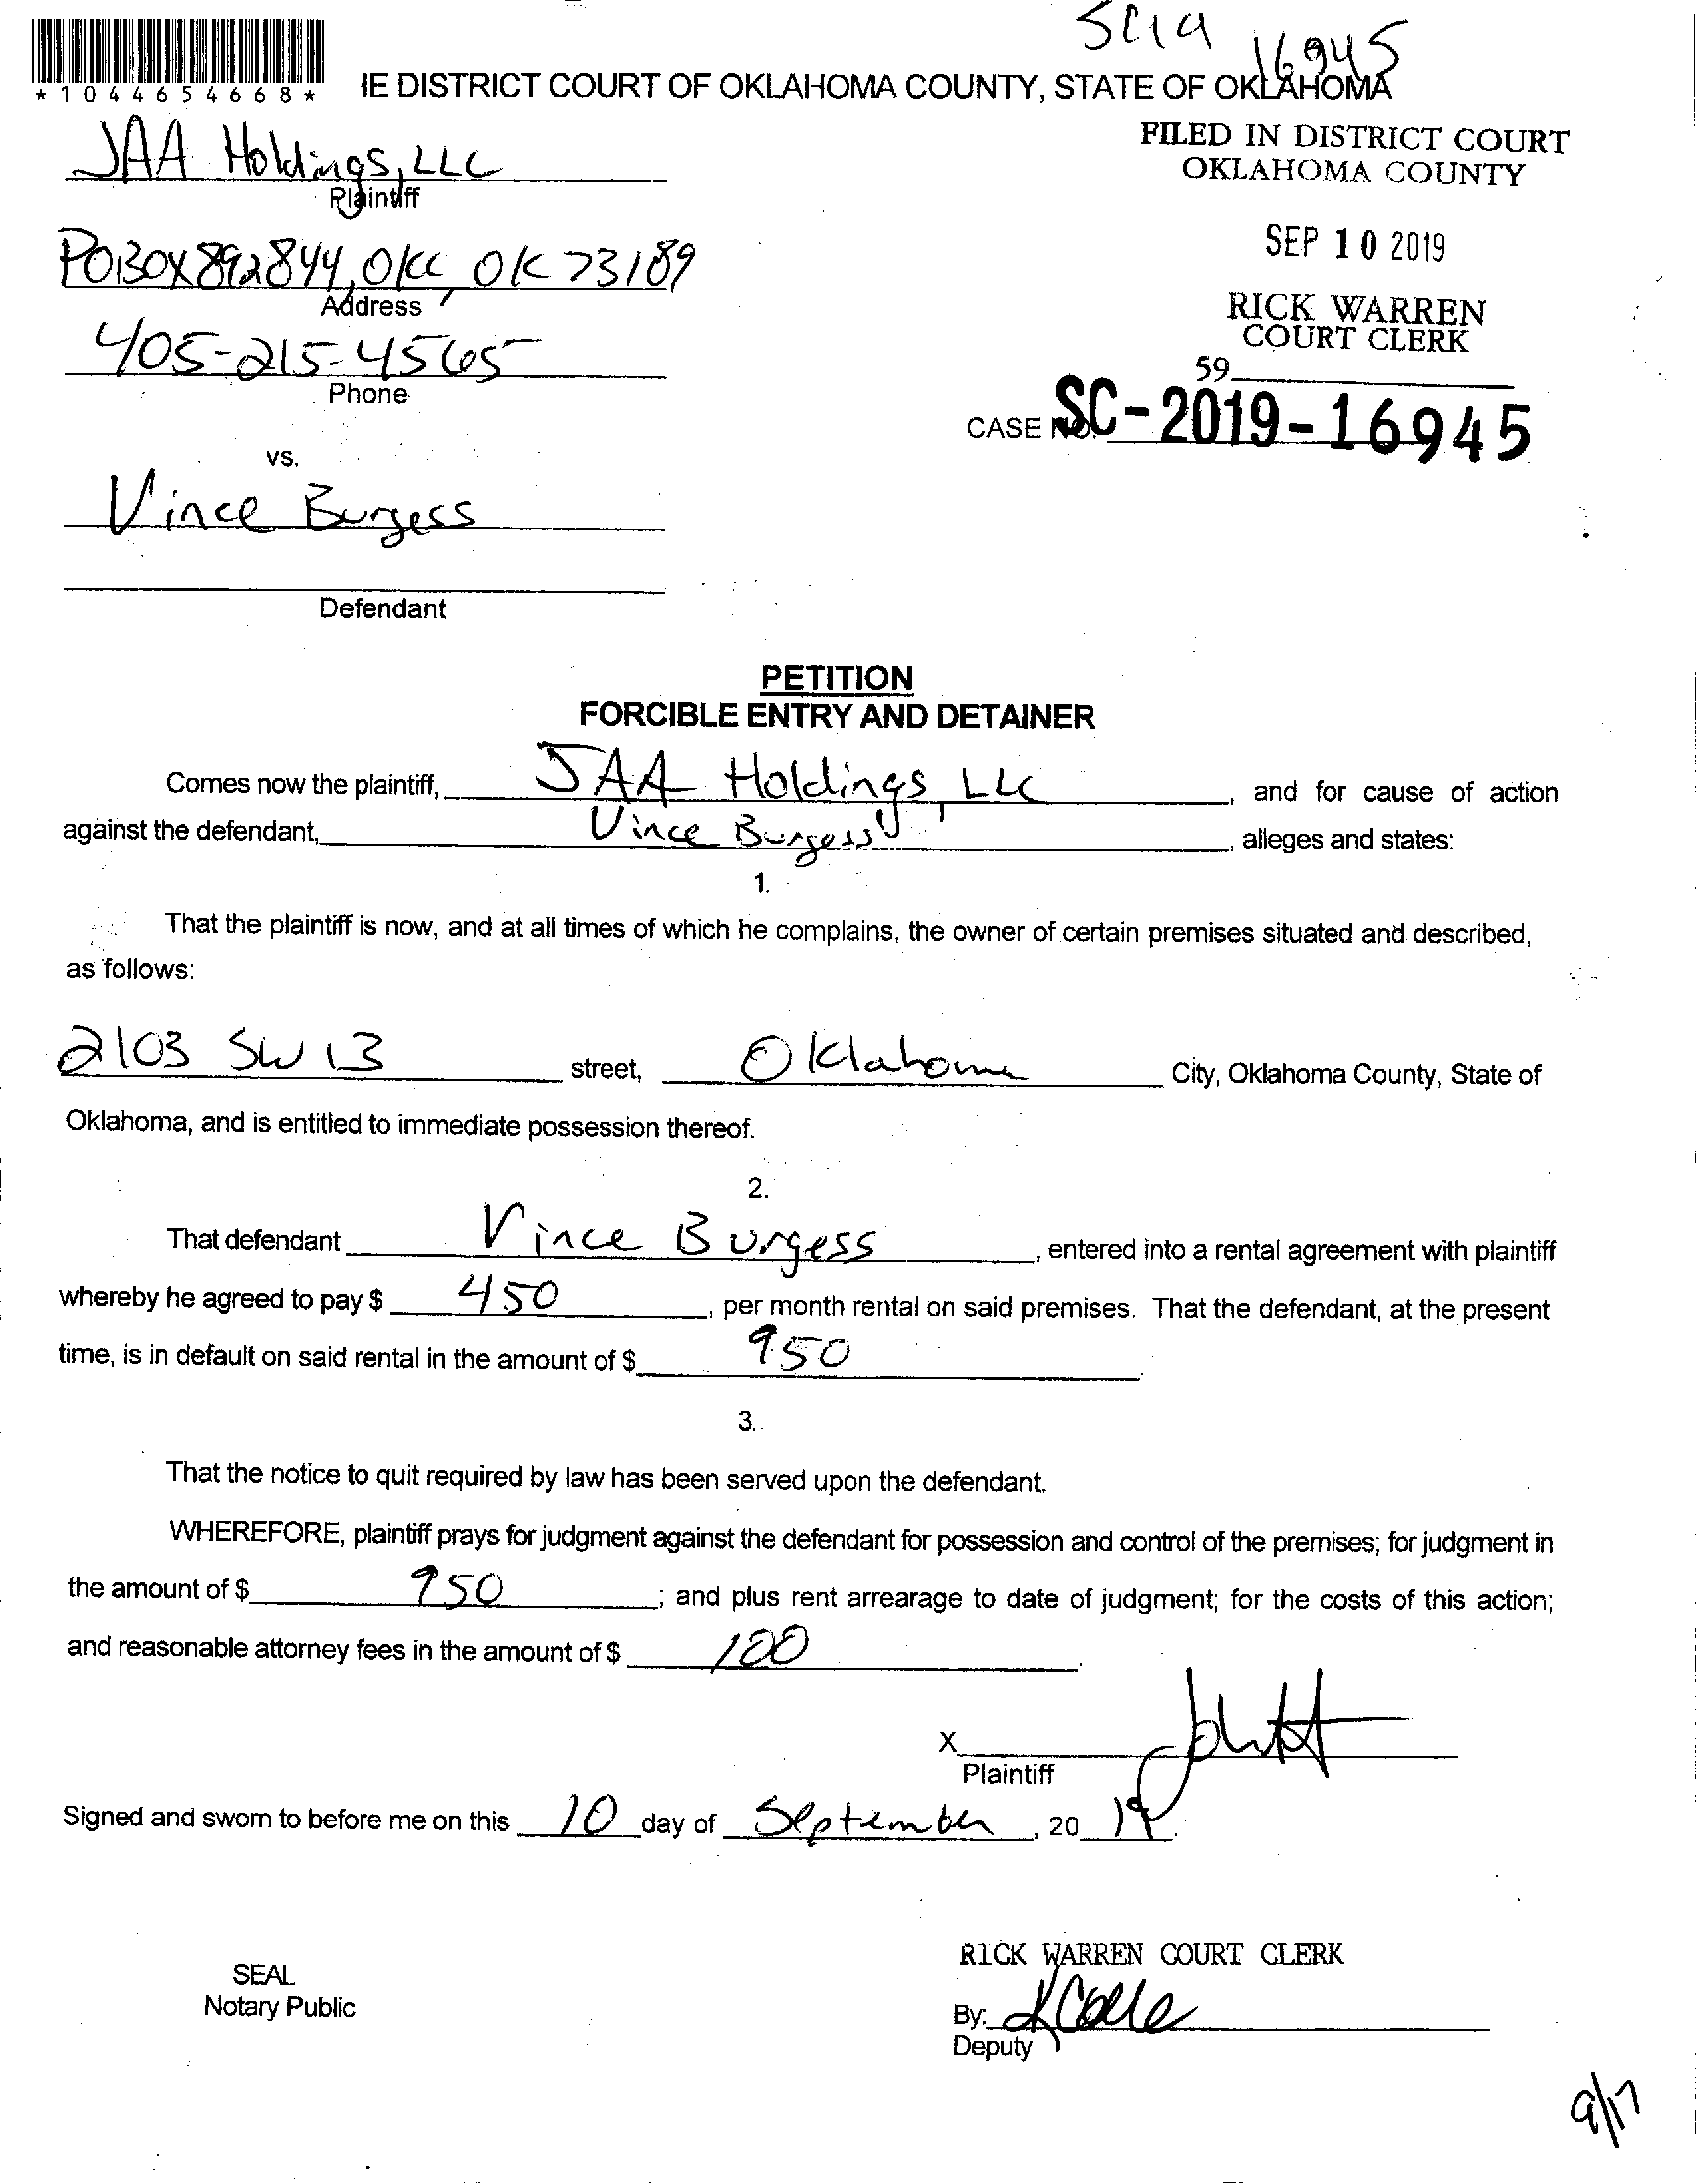 SC19 16945
*1044654668*
IE DISTRICT COURT OF OKLAHOMA COUNTY, STATE OF OKLAHOMA
JAA Holdings, LLC
Plaintiff
FILED IN DISTRICT COURT
OKLAHOMA COUNTY
PO BOX 892844, OKC, OK 73189
Address
SEP 10 2019
405-215-4565
Phone
RICK WARREN
COURT CLERK
59
CASE NO. SC-2019-16945
vs.
Vince Burgess
Defendant
PETITION
FORCIBLE ENTRY AND DETAINER
Comes now the plaintiff, JAA Holdings, LLC, and for cause of action
against the defendant, Vince Burgess, alleges and states:
1.
That the plaintiff is now, and at all times of which he complains, the owner of certain premises situated and described,
as follows:
2103 SW 13 street, Oklahoma City, Oklahoma County, State of
Oklahoma, and is entitled to immediate possession thereof.
2.
That defendant Vince Burgess, entered into a rental agreement with plaintiff
whereby he agreed to pay $ 450, per month rental on said premises. That the defendant, at the present
time, is in default on said rental in the amount of $ 950
3.
That the notice to quit required by law has been served upon the defendant.
WHEREFORE, plaintiff prays for judgment against the defendant for possession and control of the premises; for judgment in
the amount of $ 950; and plus rent arrearage to date of judgment; for the costs of this action;
and reasonable attorney fees in the amount of $ 100.
X
Plaintiff
Signed and sworn to before me on this 10 day of September, 20 19.
RICK WARREN COURT CLERK
SEAL
Notary Public
By:
Deputy
9/17